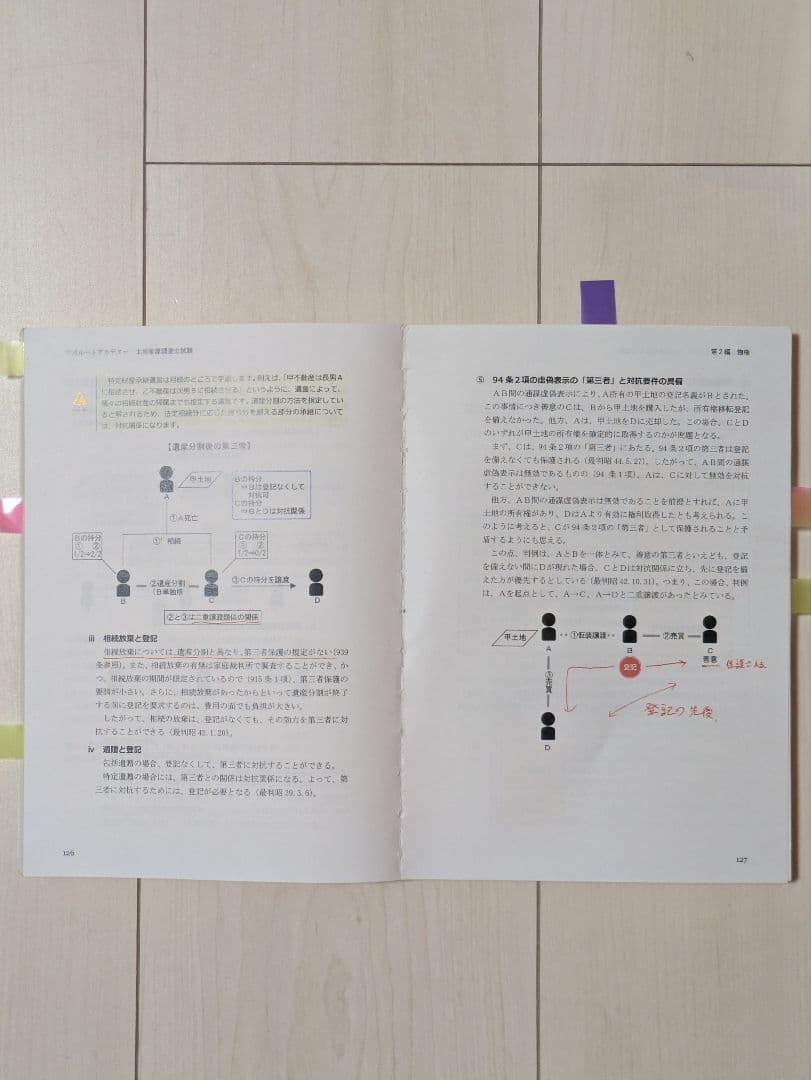 アガルートアカデミー 土地家屋調査士試験
特定財産承継遺言は相続のところで学習します。例えば、「甲不動産は長男A
に相続させ、乙不動産は次男Bに相続させる」というように、遺言によって、
個々の相続財産の帰属までも指定する遺言です。遺産分割の方法を指定してい
ると解されるため、法定相続分に応じた持ち分を超える部分の承継について
は、対抗関係になります。
【遺産分割後の第三者】
甲土地
A
Bの持分
⇒Bは登記なくして
対抗可
Cの持分
⇒BとDは対抗関係
①A死亡
①'相続
Bの持分
① ②
1/2⇒2/2
Cの持分
① ②
1/2⇒0/2
②遺産分割
(B単独所有)
③Cの持分を譲渡
B
C
D
②と③は二重譲渡類似の関係
ⅲ 相続放棄と登記
相続放棄については、遺産分割と異なり、第三者保護の規定がない(939
条参照)。また、相続放棄の有無は家庭裁判所で調査することができ、か
つ、相続放棄の期間が限定されているので(915条1項)、第三者保護の
要請が小さい。さらに、相続放棄があったからといって遺産分割が終了
する前に登記を要求するのは、費用の面でも負担が大きい。
したがって、相続の放棄は、登記がなくても、その効力を第三者に対
抗することができる(最判昭42.1.20)。
ⅳ 遺贈と登記
包括遺贈の場合、登記なくして、第三者に対抗することができる。
特定遺贈の場合には、第三者との関係は対抗関係になる。よって、第
三者に対抗するためには、登記が必要となる(最判昭39.3.6)。
126
第2編 物権
⑤ 94条2項の虚偽表示の「第三者」と対抗要件の具備
AB間の通謀虚偽表示により、A所有の甲土地の登記名義がBとされた。
この事情につき善意のCは、Bから甲土地を購入したが、所有権移転登記
を備えなかった。他方、Aは、甲土地をDに売却した。この場合、CとD
のいずれが甲土地の所有権を確定的に取得するのかが問題となる。
まず、Cは、94条2項の「第三者」にあたる。94条2項の第三者は登記
を備えなくても保護される(最判昭44.5.27)。したがって、AB間の通謀
虚偽表示は無効であるものの(94条1項)、Aは、Cに対して無効を対抗
することができない。
他方、AB間の通謀虚偽表示は無効であることを前提とすれば、Aに甲
土地の所有権があり、DはAより有効に権利取得したとも考えられる。こ
のように考えると、Cが94条2項の「第三者」として保護されることと矛
盾するようにも思える。
この点、判例は、AとBを一体とみて、善意の第三者といえども、登記
を備えない間にDが現れた場合、CとDは対抗関係に立ち、先に登記を備
えた方が優先するとしている(最判昭42.10.31)。つまり、この場合、判例
は、Aを起点として、A→C、A→Dと二重譲渡があったとみている。
甲土地
A
①仮装譲渡
B
②売買
C
善意
登記
③売買
登記の先後
D
127